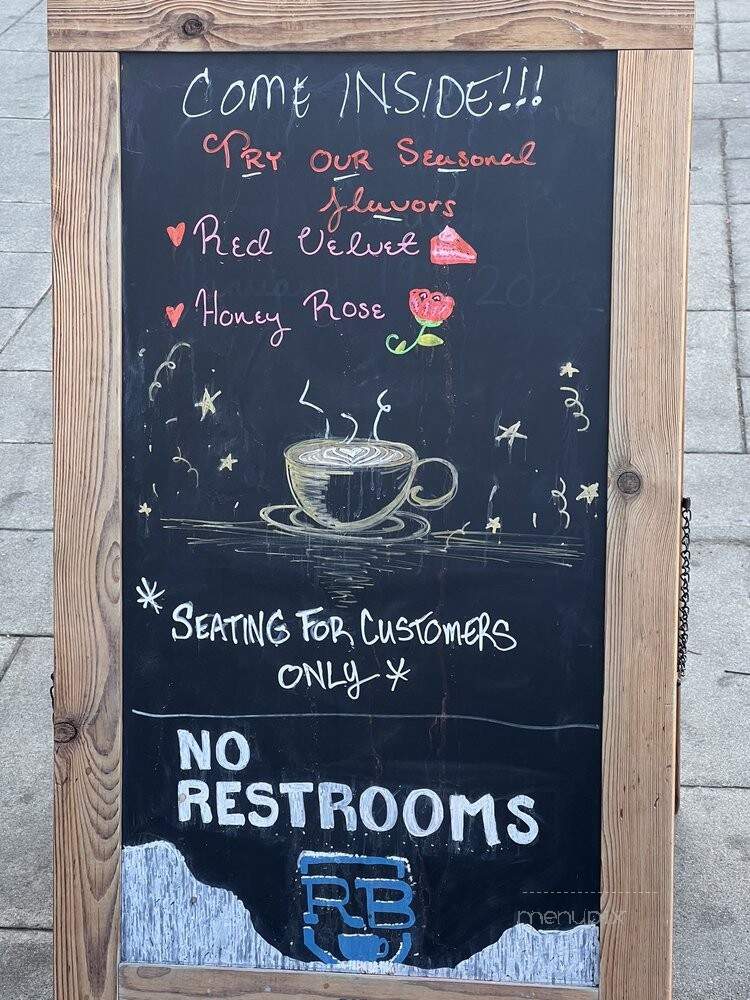 COME INSIDE!!!
TRY OUR Seasonal
flavors
Red Velvet
Honey Rose
* SEATING FOR CUSTOMERS
ONLY *
NO
RESTROOMS
RB
menupix